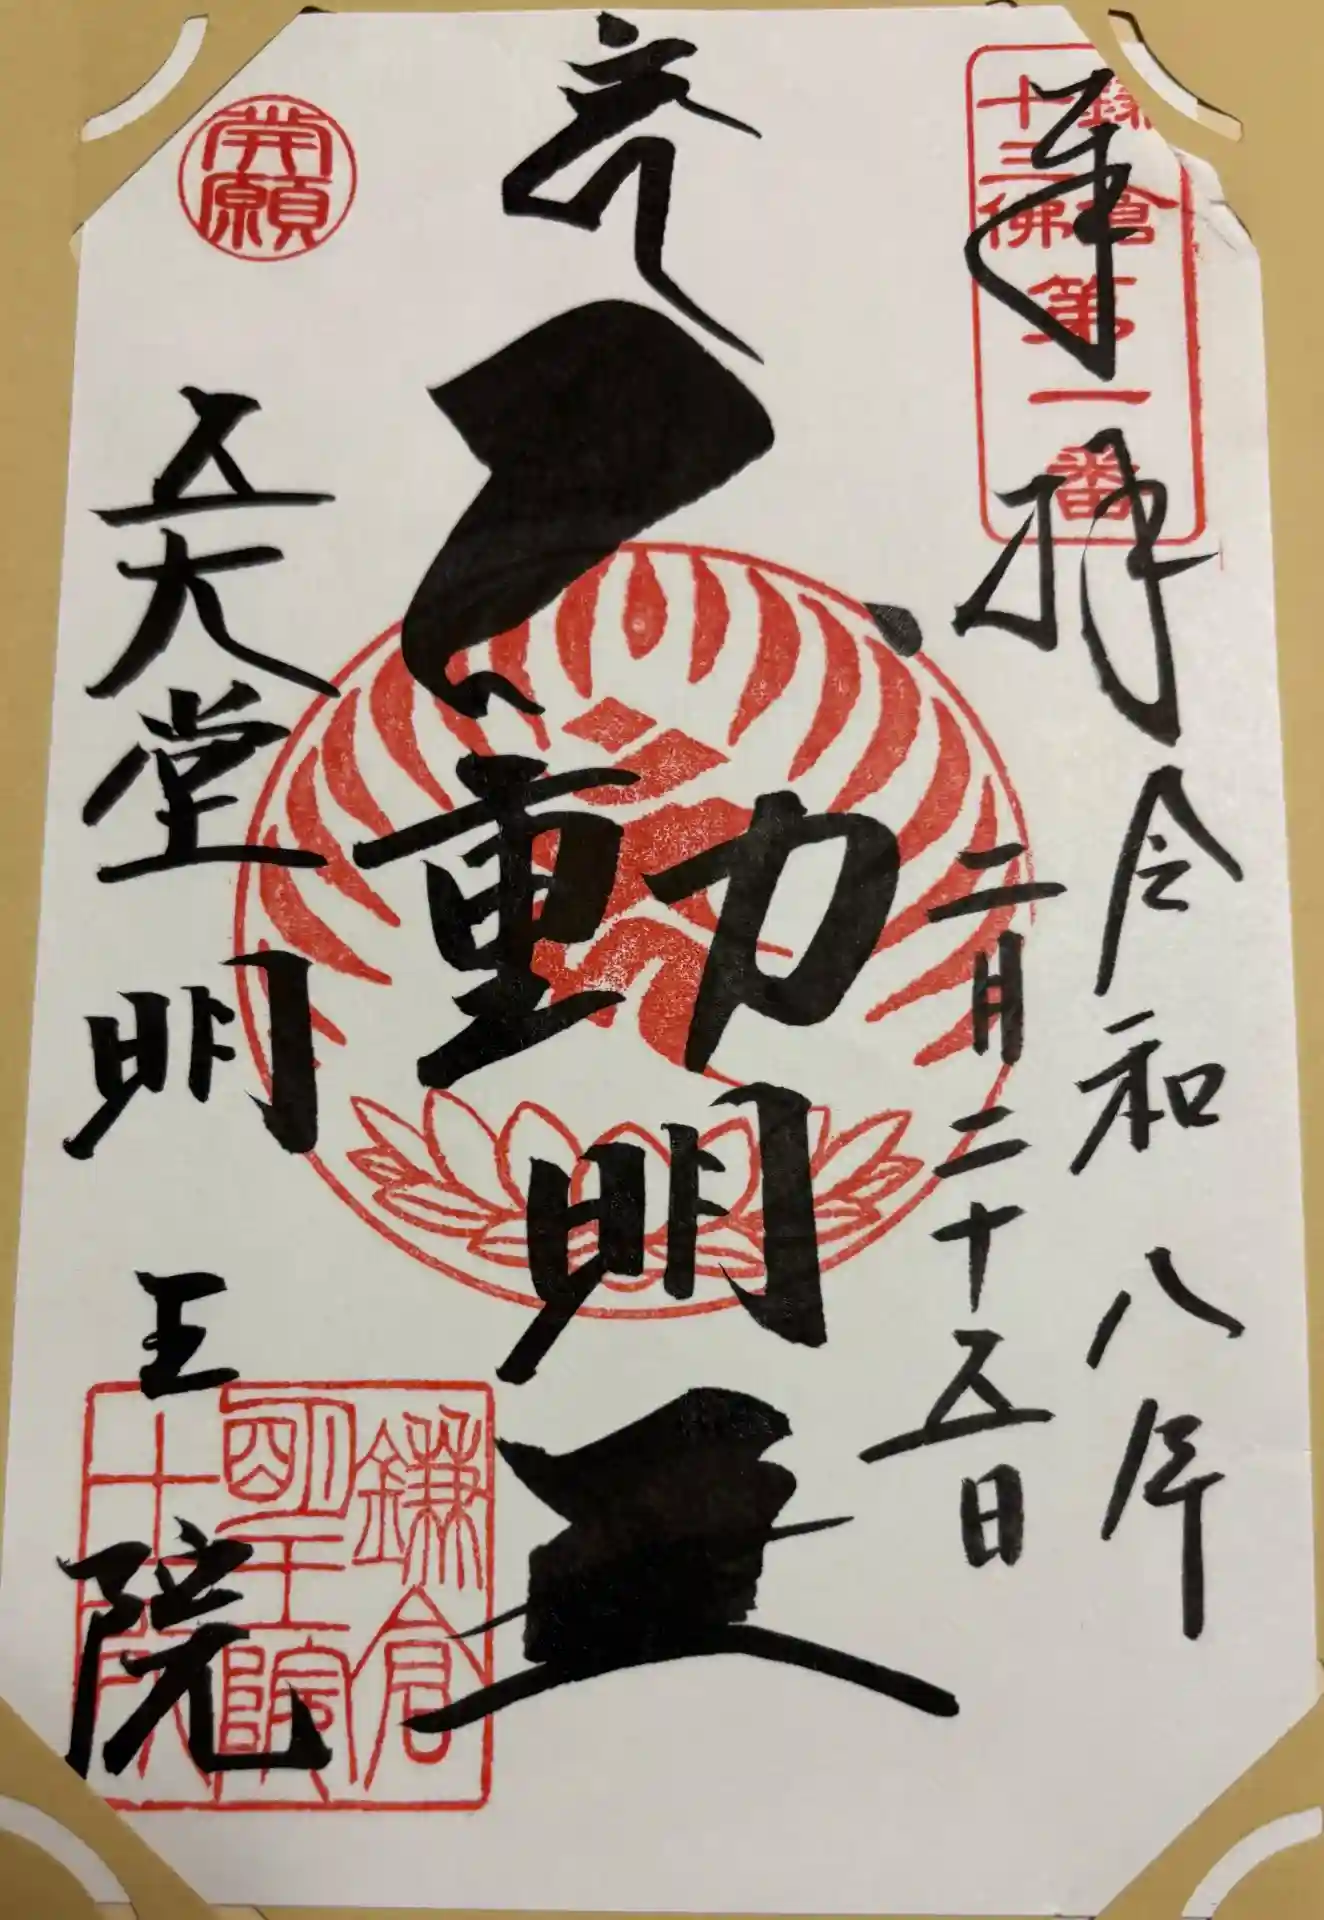 鎌倉
十三佛
第一番
奉拝
令和八年
二月二十五日
不動明王
願
五大堂
明王院
鎌倉
明王院
十二所